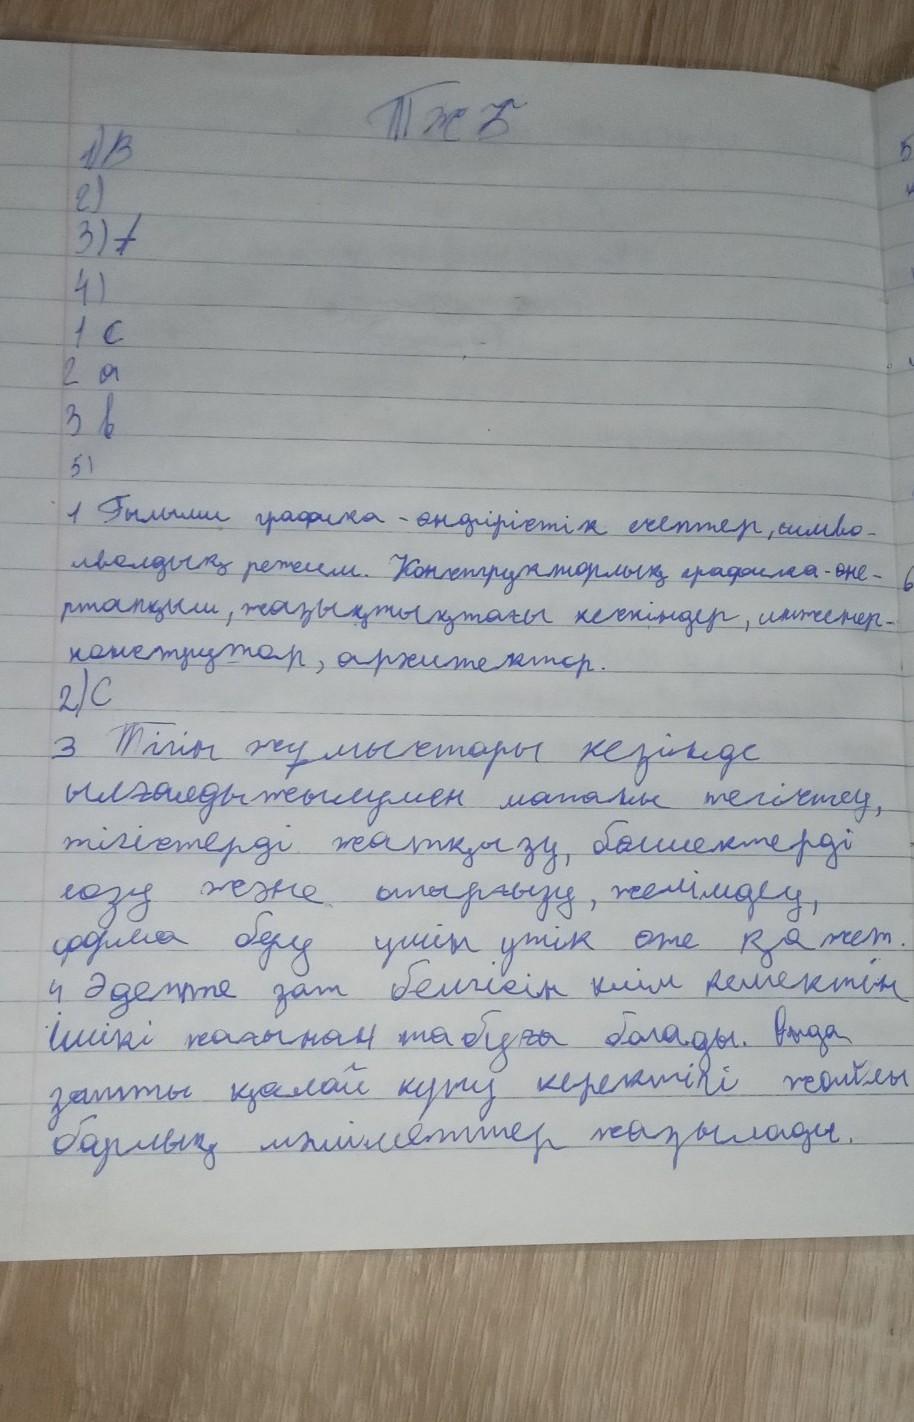 ТЖБ
1) В
2)
3) А
4)
1 с
2 а
3 в
5)
1 Ғылыми графика - өндірістік есептер, симво-
лвалдық режим. Конструкторлық графика - өне-
ртапқыш, жазықтықтағы кескіндер, инженер-
конструтор, архитектор.
2) С
3 Тігін жұмыстары кезінде
ылғалдыжылумен матаны тегістеу,
тігістерді жатқызу, бөлшектерді
созу және отырғызу, желімдеу,
форма беру үшін үтік өте қажет.
4 Әдетте зат белгісін киім кешектін
ішкі жағынан табуға болады. Онда
затты қалай күту керектігі жайлы
барлық мәліметтер жазылады.
5
6